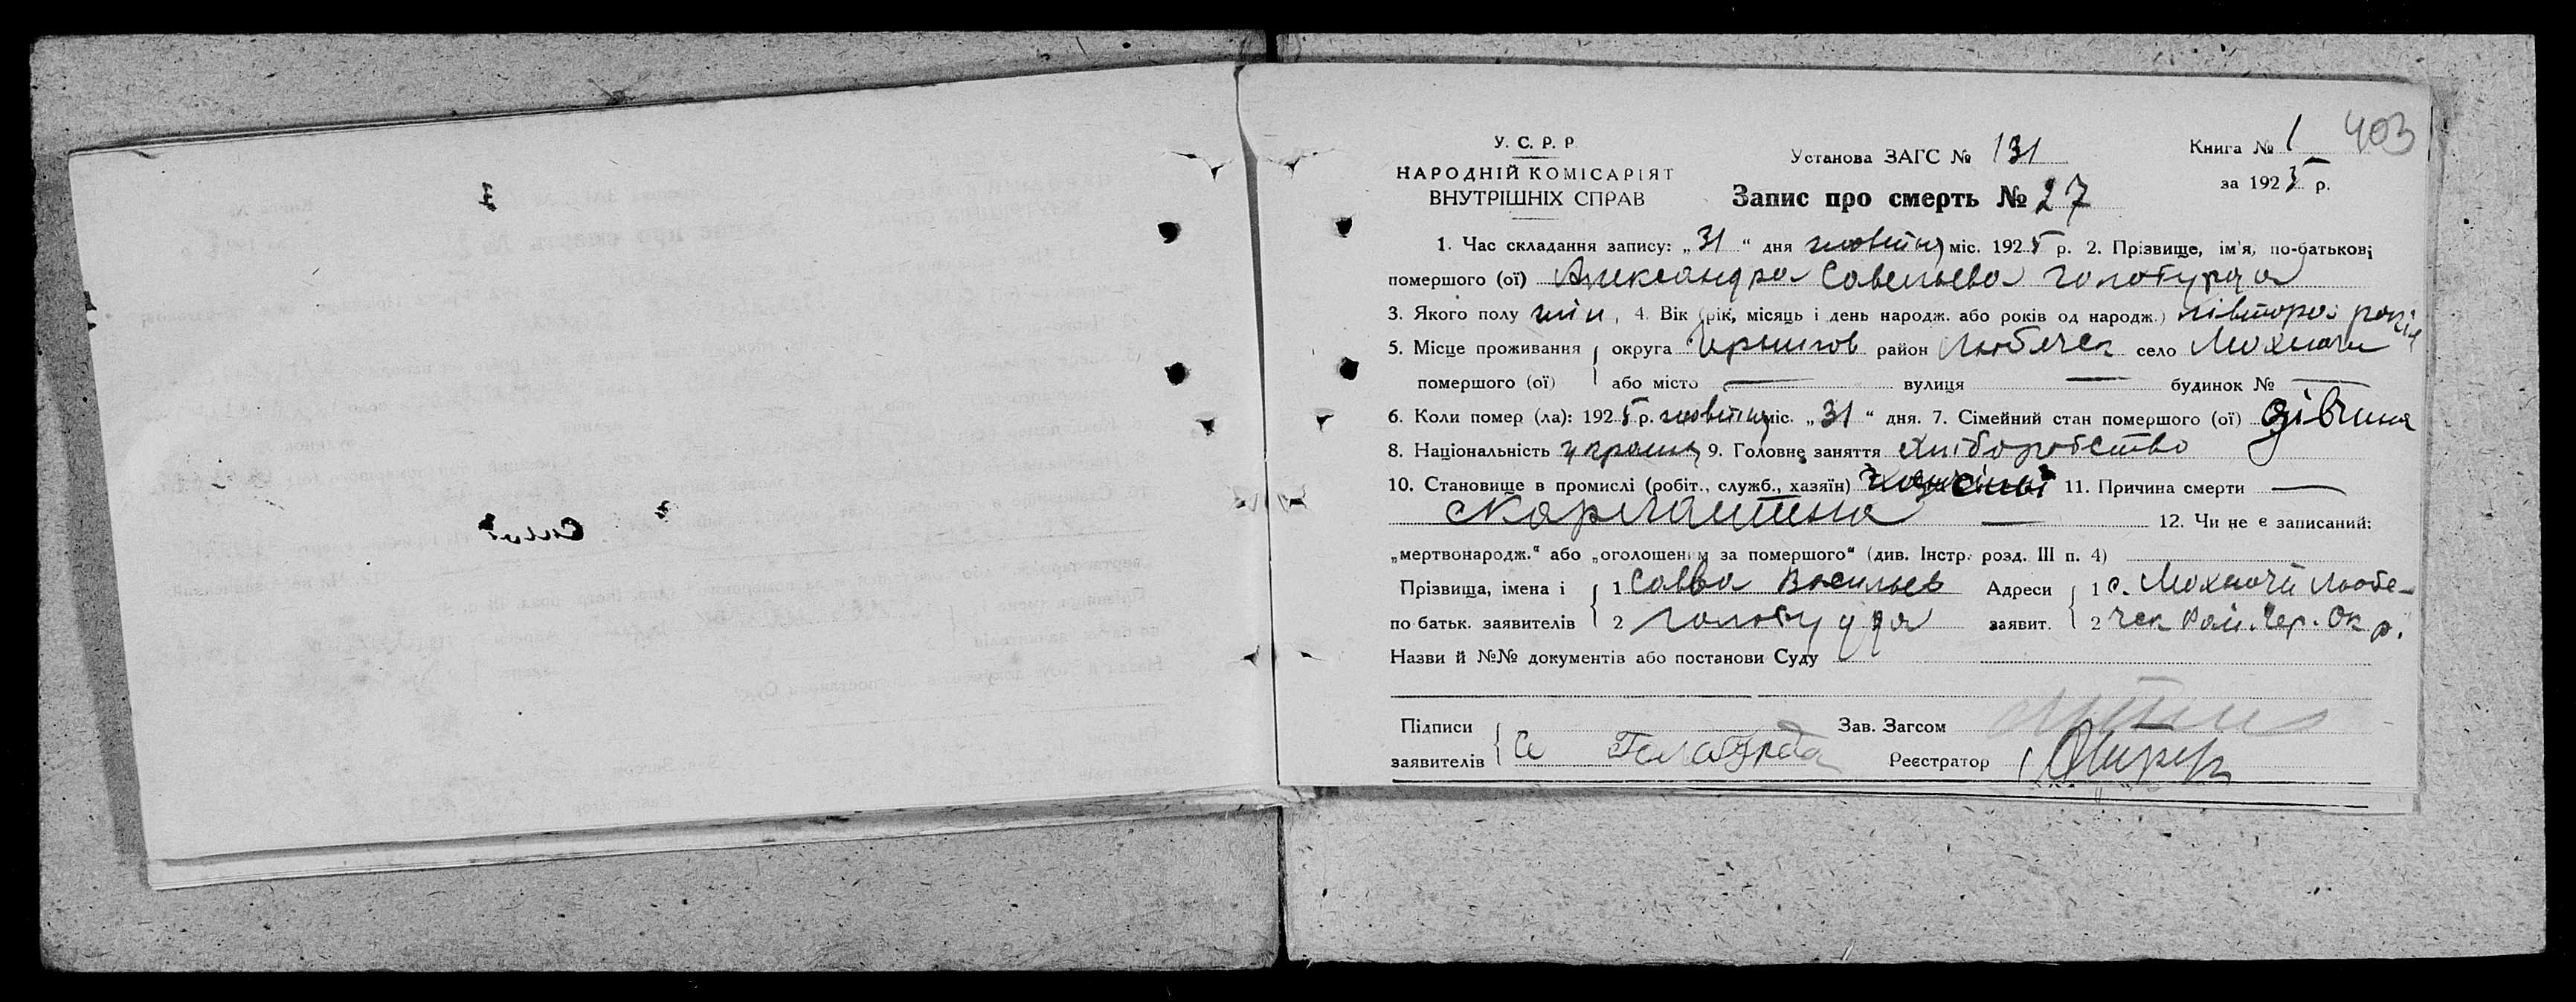 403
У. С. Р. Р.
НАРОДНІЙ КОМІСАРІЯТ
ВНУТРІШНІХ СПРАВ
Установа ЗАГС № 131
Книга № 1
за 1925 р.
Запис про смерть № 27
1. Час складання запису: „31“ дня жовтня міс. 1925 р. 2. Прізвище, ім'я, по-батькові
помершого (ої) Александра Савельева
3. Якого полу жін, 4. Вік (рік, місяць і день народж. або років од народж.) півтора років
5. Місце проживання округа Чернигов район Любечск село Мохначи
помершого (ої) або місто — вулиця — будинок № —
6. Коли помер (ла): 1925 р. жовтня міс. „31“ дня. 7. Сімейний стан помершого (ої) дівчина
8. Національність україн 9. Головне заняття хліборобство
10. Становище в промислі (робіт., служб., хазяїн) 11. Причина смерти —
скарлатина — 12. Чи не є записаний:
„мертвонародж.“ або „оголошеним за помершого“ (див. Інстр. розд. III п. 4)
Прізвища, імена і 1 Савва Васильев Адреси 1 с. Мохначи Любе-
по батьк. заявителів 2 заявит. 2 чск Рай. Чер. Окр.
Назви й №№ документів або постанови Суду
Підписи Зав. Загсом
заявителів С Реєстратор